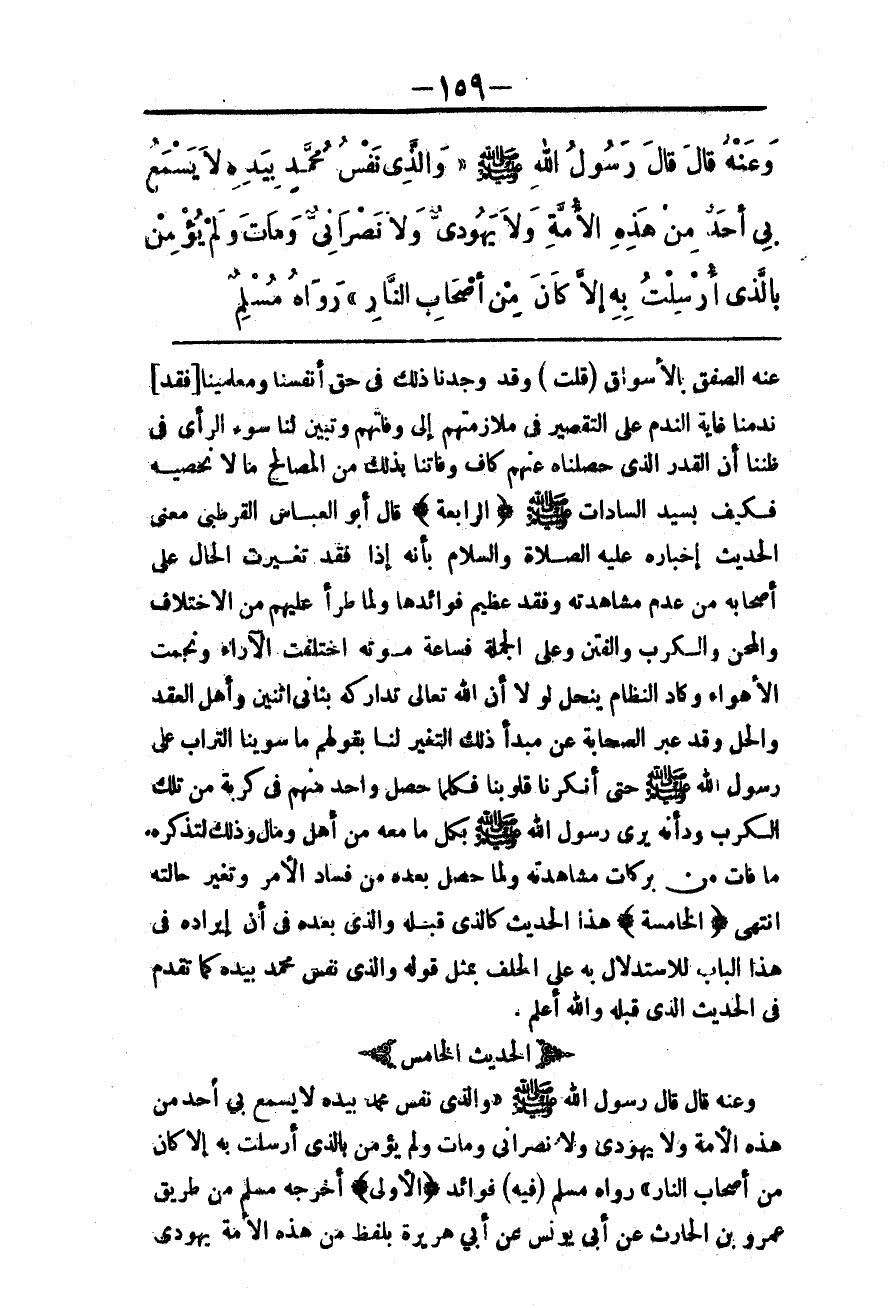 — ١٥٩ —
وَعَنْهُ قَالَ قَالَ رَسُولُ اللهِ ﷺ « وَالَّذِى نَفْسُ مُحَمَّدٍ بِيَدِهِ لاَ يَسْمَعُ
بِي أَحَدٌ مِنْ هَذِهِ الأُمَّةِ وَلاَ يَهُودِىٌّ وَلاَ نَصْرَانِىٌّ وَمَاتَ وَلَمْ يُؤْمِنْ
بِالَّذِى أُرْسِلْتُ بِهِ إِلاَّ كَانَ مِنْ أَصْحَابِ النَّارِ » رَوَاهُ مُسْلِمٌ
عنه الصفق بالأسواق (قلت) وقد وجدنا ذلك فى حق أنفسنا ومعلمينا [فقد]
ندمنا غاية الندم على التقصير فى ملازمتهم إلى وفاتهم وتبين لنا سوء الرأى فى
ظننا أن القدر الذى حصلناه عنهم كاف وفاتنا بذلك من المصالح ما لا نحصيه
فكيف بسيد السادات ﷺ ﴿ الرابعة ﴾ قال أبو العباس القرطبى معنى
الحديث إخباره عليه الصلاة والسلام بأنه إذا فقد تغيرت الحال على
أصحابه من عدم مشاهدته وفقد عظيم فوائدها ولما طرأ عليهم من الاختلاف
والمحن والكرب والفتن وعلى الجملة فساعة موته اختلفت الآراء ونجمت
الأهواء وكاد النظام ينحل لو لا أن الله تعالى تداركه بثانى اثنين وأهل العقد
والحل وقد عبر الصحابة عن مبدأ ذلك التغير لنا بقولهم ما سوينا التراب على
رسول الله ﷺ حتى أنكرنا قلوبنا فكلما حصل واحد منهم فى كربة من تلك
الكرب ودأنه يرى رسول الله ﷺ بكل ما معه من أهل ومال وذلك لتذكره
ما فات من بركات مشاهدته ولما حصل بعده من فساد الأمر وتغير حالته
انتهى ﴿ الخامسة ﴾ هذا الحديث كالذى قبله والذى بعده فى أن إيراده فى
هذا الباب للاستدلال به على الحلف بمثل قوله والذى نفس محمد بيده كما تقدم
فى الحديث الذى قبله والله أعلم .
الحديث الخامس
وعنه قال قال رسول الله ﷺ «والذى نفس محمد بيده لا يسمع بي أحد من
هذه الأمة ولا يهودى ولا نصرانى ومات ولم يؤمن بالذى أرسلت به إلا كان
من أصحاب النار» رواه مسلم (فيه) فوائد ﴿الأولى﴾ أخرجه مسلم من طريق
عمرو بن الحارث عن أبى يونس عن أبي هريرة بلفظ من هذه الأمة يهودى